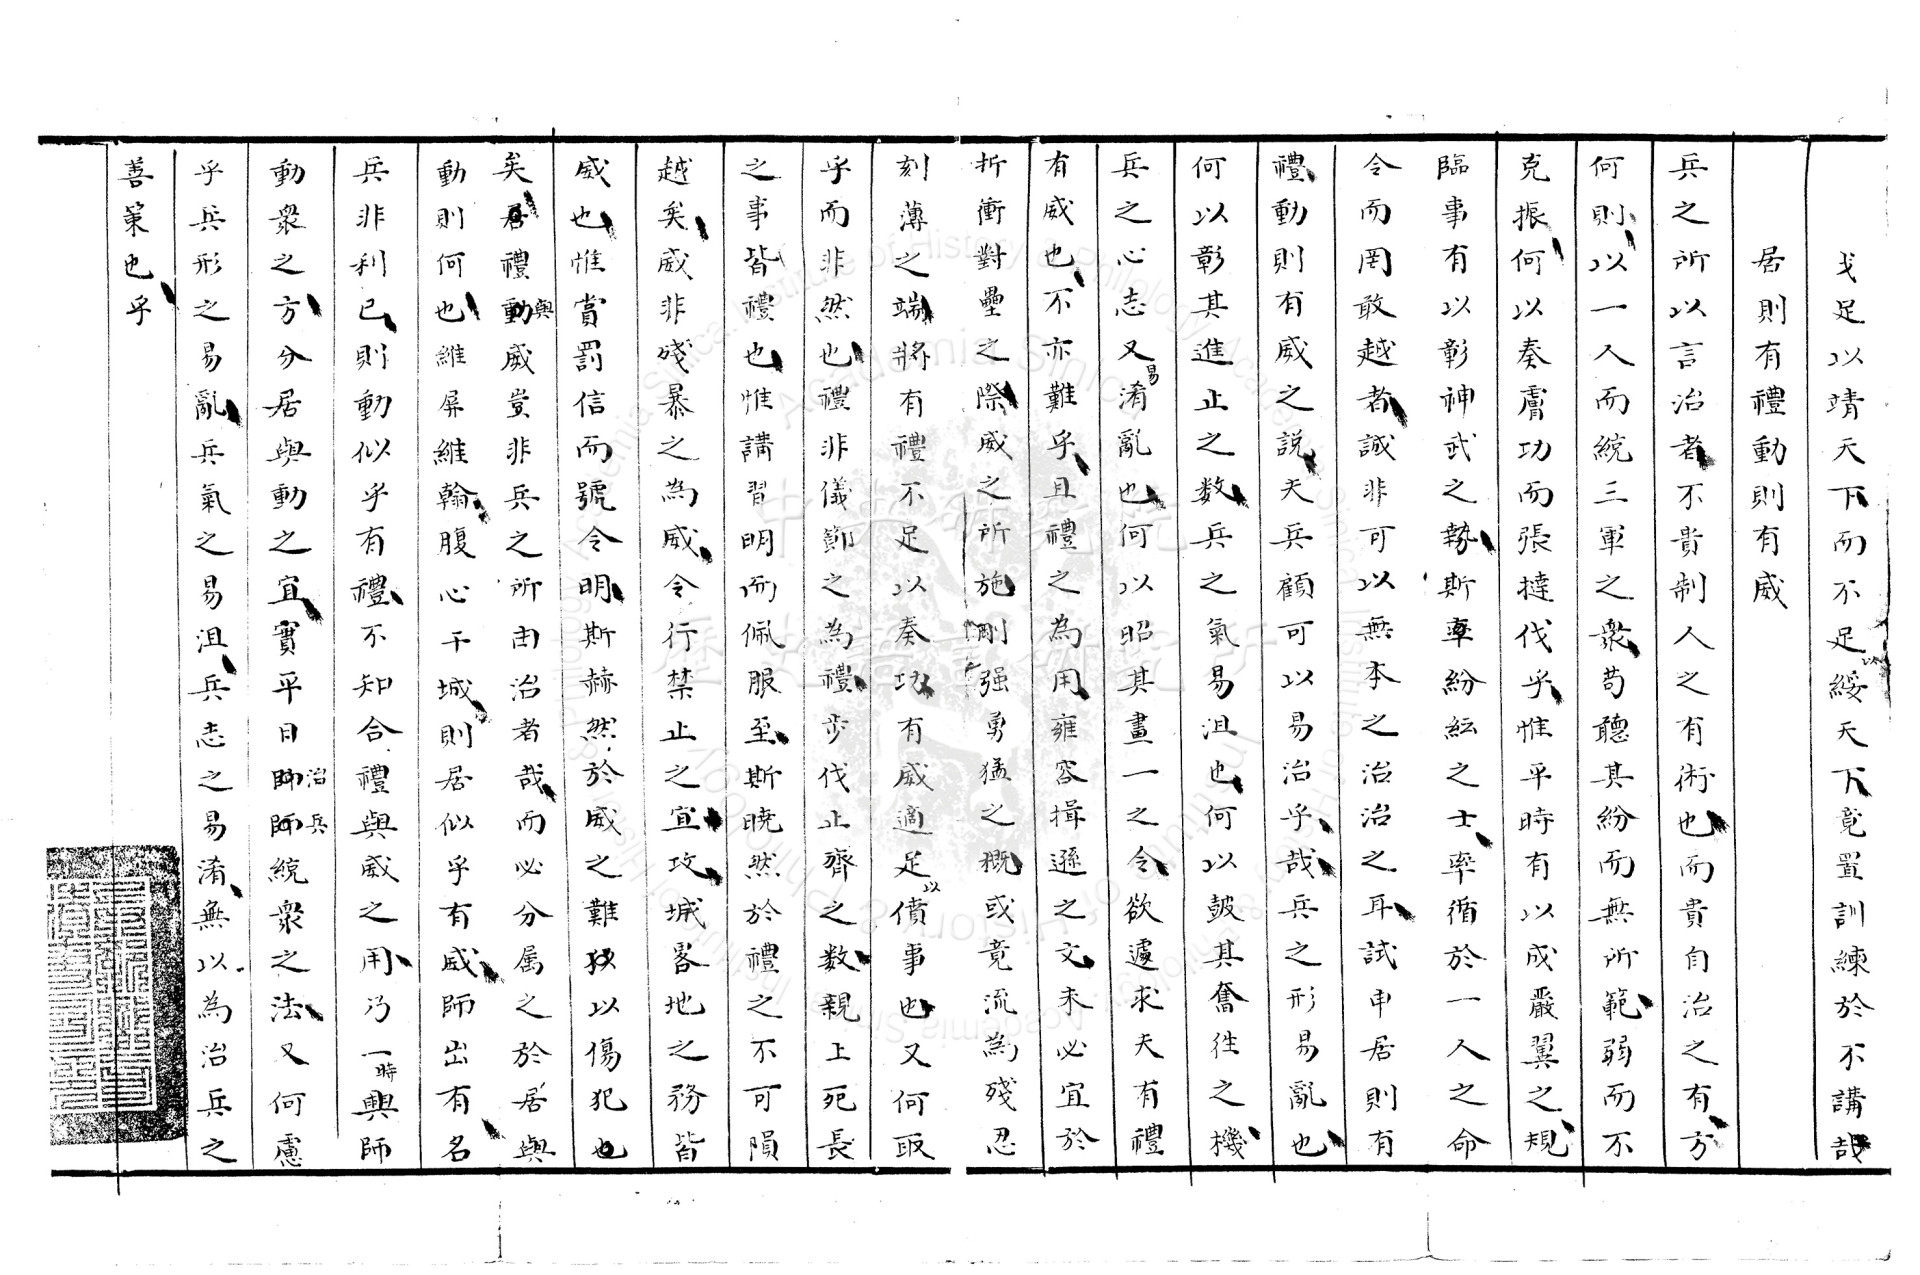 戈足以靖天下而不足以綏天下竟置訓練於不講哉
居則有禮動則有威
兵之所以言治者不貴制人之有術也而貴自治之有方
何則以一人而統三軍之衆苟聽其紛而無所範弱而不
克振何以奏膚功而張撻伐乎惟平時有以成嚴翼之規
臨事有以彰神武之勢斯率紛紜之士率循於一人之命
令而罔敢越者誠非可以無本之治治之耳試申居則有
禮動則有威之說夫兵顧可以易治乎哉兵之形易亂也
何以彰其進止之数兵之氣易沮也何以鼓其奮往之機
兵之心志又易淆亂也何以昭其畫一之令欲遽求夫有禮
有威也不亦難乎且禮之為用雍容揖遜之文未必宜於
折衝對壘之際威之所施剛强勇猛之概或竟流為殘忍
刻薄之端將有禮不足以奏功有威適足以僨事也又何取
乎而非然也禮非儀節之為禮步伐止齊之数親上死長
之事皆禮也惟講習明而佩服至斯曉然於禮之不可隕
越矣威非殘暴之為威令行禁止之宜攻城畧地之務皆
威也惟賞罰信而號令明斯赫然於威之難狎以傷犯也
矣居禮與動威豈非兵之所由治者哉而必分属之於居與
動則何也維屏維翰腹心干城則居似乎有威師出有名
兵非利已則動似乎有禮不知合禮與威之用乃一時興師
動衆之方分居與動之宜實平日治兵師師統衆之法又何慮
乎兵形之易亂兵氣之易沮兵志之易淆無以為治兵之
善策也乎
中央研究院
歷史語言研究所
Academia Sinica
Institute of History & Philology